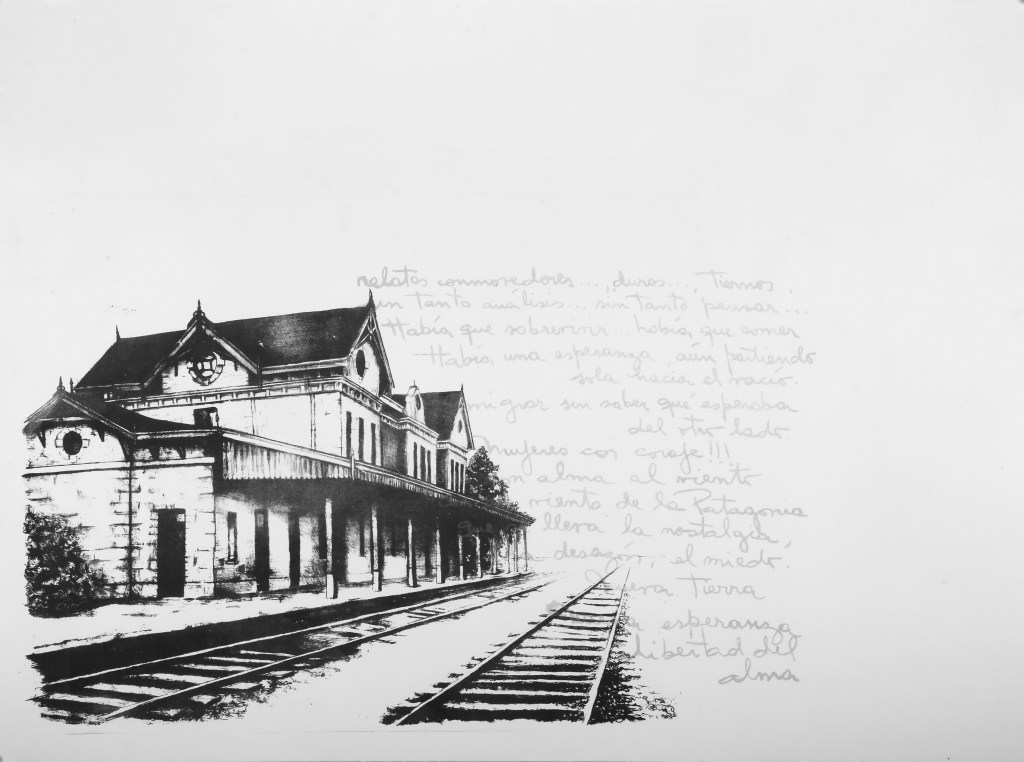 relatos conmovedores..., duros..., Tiernos.
un tanto análisis... sin tanto pensar...
Había que sobrevivir... había que comer
Había una esperanza, aún partiendo
sola hacia el vacío.
migrar sin saber qué esperaba
del otro lado
Mujeres con coraje!!!
alma al viento
viento de la Patagonia
que lleva la nostalgia,
desazón, el miedo.
Tierra
esperanza
libertad del
alma